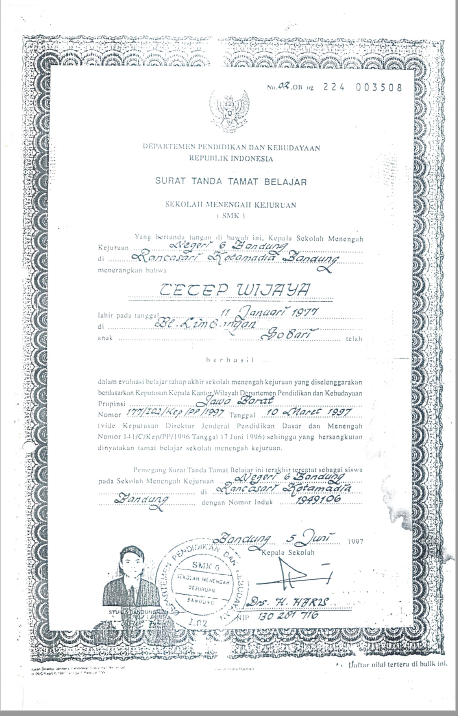 No. 02 .OB og 224 003508
DEPARTEMEN PENDIDIKAN DAN KEBUDAYAAN
REPUBLIK INDONESIA
SURAT TANDA TAMAT BELAJAR
SEKOLAH MENENGAH KEJURUAN
( SMK )
Yang bertanda tangan di bawah ini, Kepala Sekolah Menengah
Kejuruan Negeri 6 Bandung
di Rancasari Kotamadia Bandung
menerangkan bahwa
CECEP WIJAYA
lahir pada tanggal 11 Januari 1977
di Bl. Limbangan
anak Sobari telah
berhasil
dalam evaluasi belajar tahap akhir sekolah menengah kejuruan yang diselenggarakan
berdasarkan Keputusan Kepala Kantor Wilayah Departemen Pendidikan dan Kebudayaan
Propinsi Jawa Barat
Nomor 177/I02/Kep/PP/1997 Tanggal 10 Maret 1997
(vide Keputusan Direktur Jenderal Pendidikan Dasar dan Menengah
Nomor 341/C/Kep/PP/1996 Tanggal 17 Juni 1996) sehingga yang bersangkutan
dinyatakan tamat belajar sekolah menengah kejuruan.
Pemegang Surat Tanda Tamat Belajar ini terakhir tercatat sebagai siswa
pada Sekolah Menengah Kejuruan Negeri 6 Bandung
di Rancasari Kotamadia
Bandung dengan Nomor Induk 1949106
Bandung 5 Juni 1997
Kepala Sekolah
DEPARTEMEN PENDIDIKAN DAN
SMK 6
SEKOLAH MENENGAH
KEJURUAN
BANDUNG
I.02
Drs. H. HARIS
NIP 130 251 716
Daftar nilai tertera di balik ini.